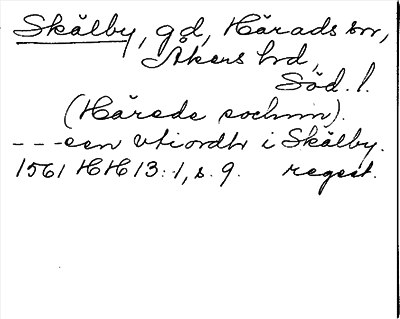 Skälby, gd, Härads sn,
Åkers hd,
Söd. l.
(Härede sochnn).
---een vtiordh i Skälby.
1561 HH 13:1, s. 9. regest.